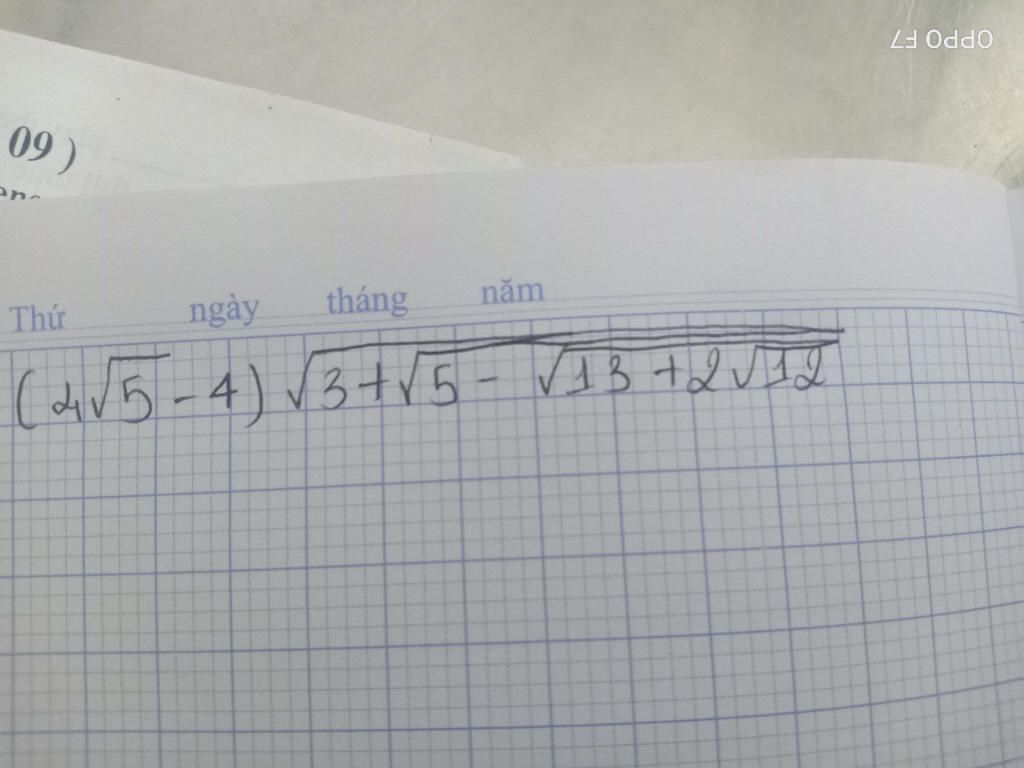 OPPO F7
09 )
Thứ ngày tháng năm
(4√5 - 4) √(3 + √(5 - √(13 + 2√12)))